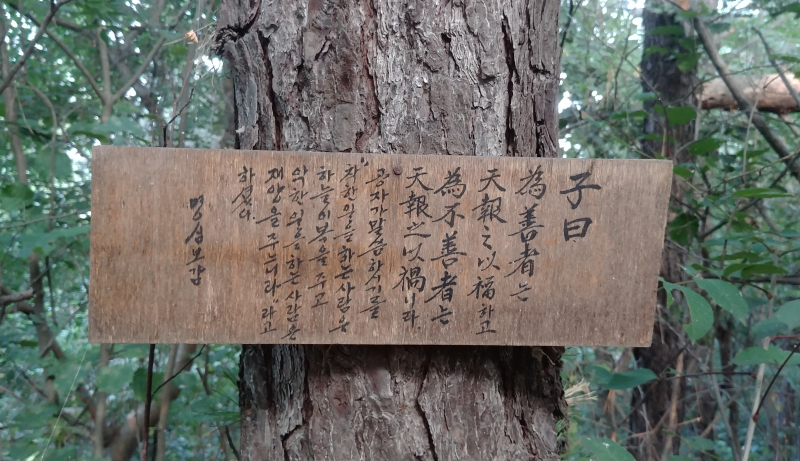 子曰
為善者는
天報之以福하고
為不善者는
天報之以禍니라.
공자가 말씀하시기를
"착한 일을 하는 사람은
하늘이 복을 주고
악한 일을 하는 사람은
재앙을 주느니라, 라고
하셨다.
명심보감